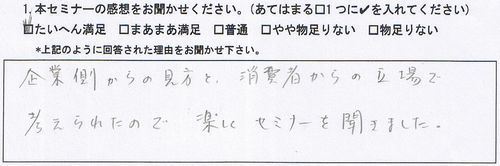 1. 本セミナーの感想をお聞かせください。(あてはまる□1つに✔を入れてください)
☑たいへん満足 □まあまあ満足 □普通 □やや物足りない □物足りない
*上記のように回答された理由をお聞かせ下さい。
企業側からの見方と、消費者からの立場で
考えられたので 楽しく セミナーを聞きました。